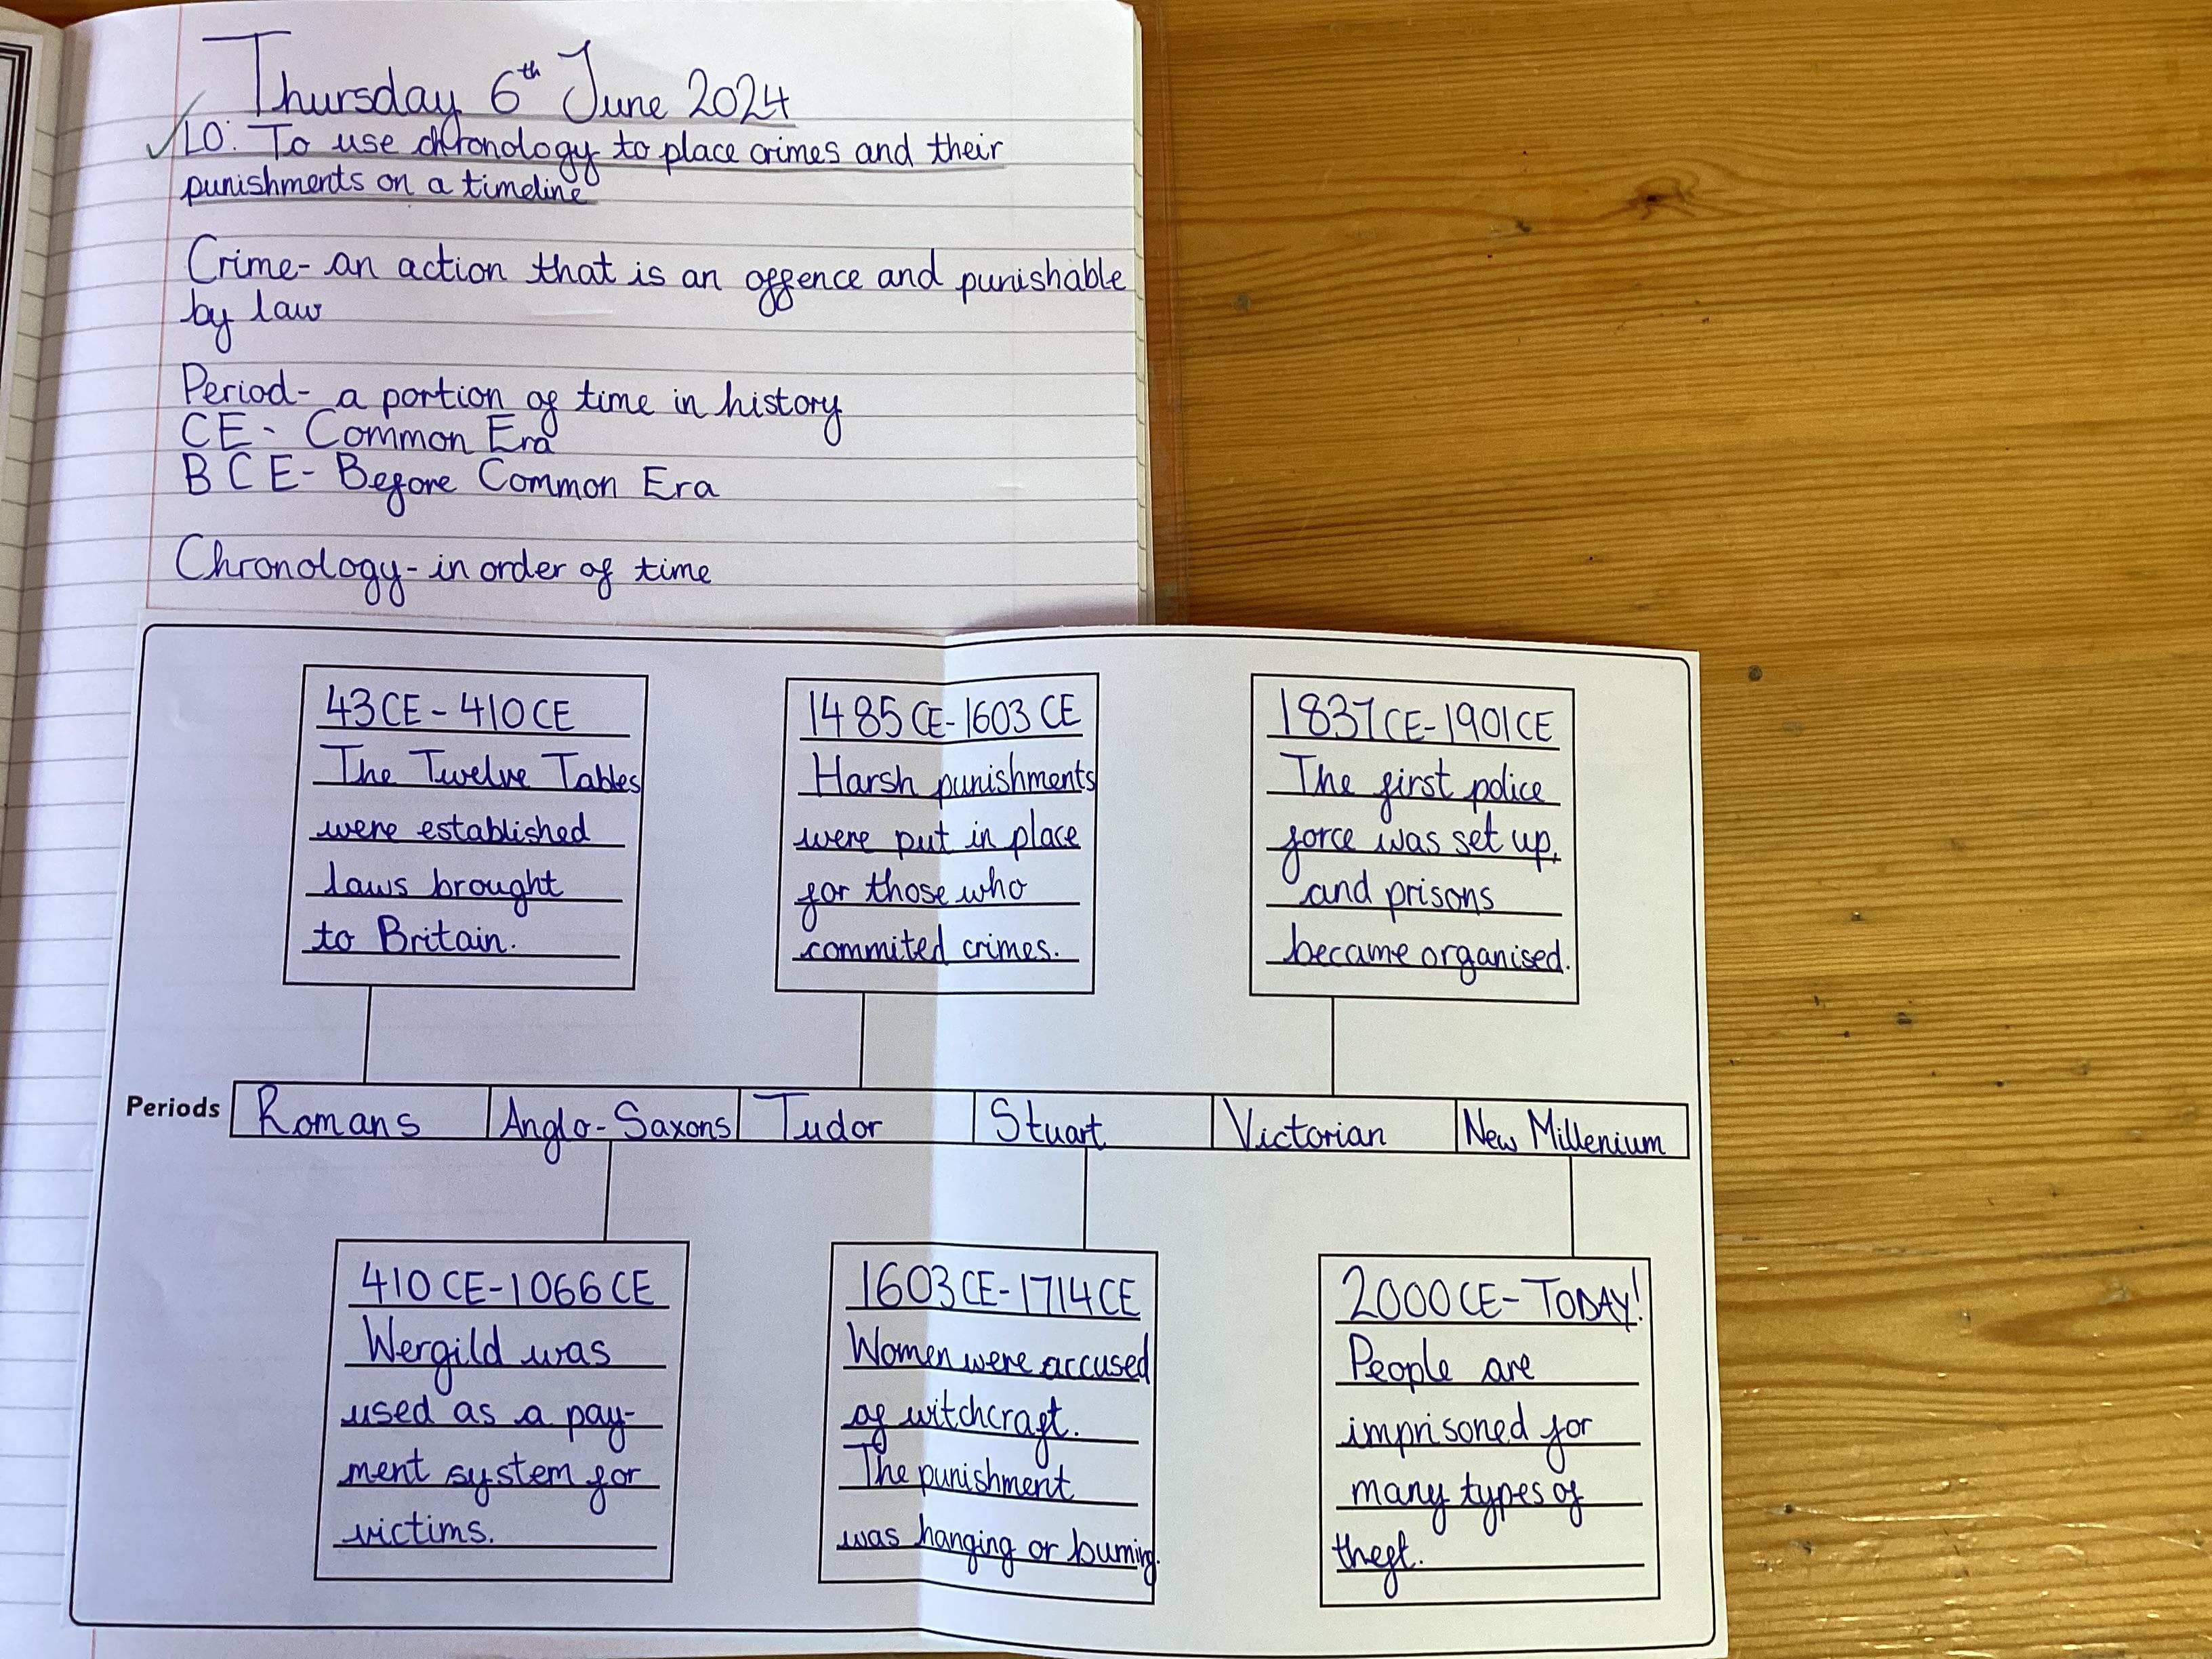 Thursday 6th June 2024
LO: To use chronology to place crimes and their
punishments on a timeline
Crime- an action that is an offence and punishable
by law
Period- a portion of time in history
CE- Common Era
BCE- Before Common Era
Chronology- in order of time
43CE-410CE
The Twelve Tables
were established
laws brought
to Britain.
1485CE-1603CE
Harsh punishments
were put in place
for those who
commited crimes.
1837CE-1901CE
The first police
force was set up,
and prisons
became organised.
Periods
Romans
Anglo-Saxons
Tudor
Stuart
Victorian
New Millenium
410CE-1066CE
Wergild was
used as a pay-
ment system for
victims.
1603CE-1714CE
Women were accused
of witchcraft.
The punishment
was hanging or burning.
2000CE-TODAY!
People are
imprisoned for
many types of
theft.